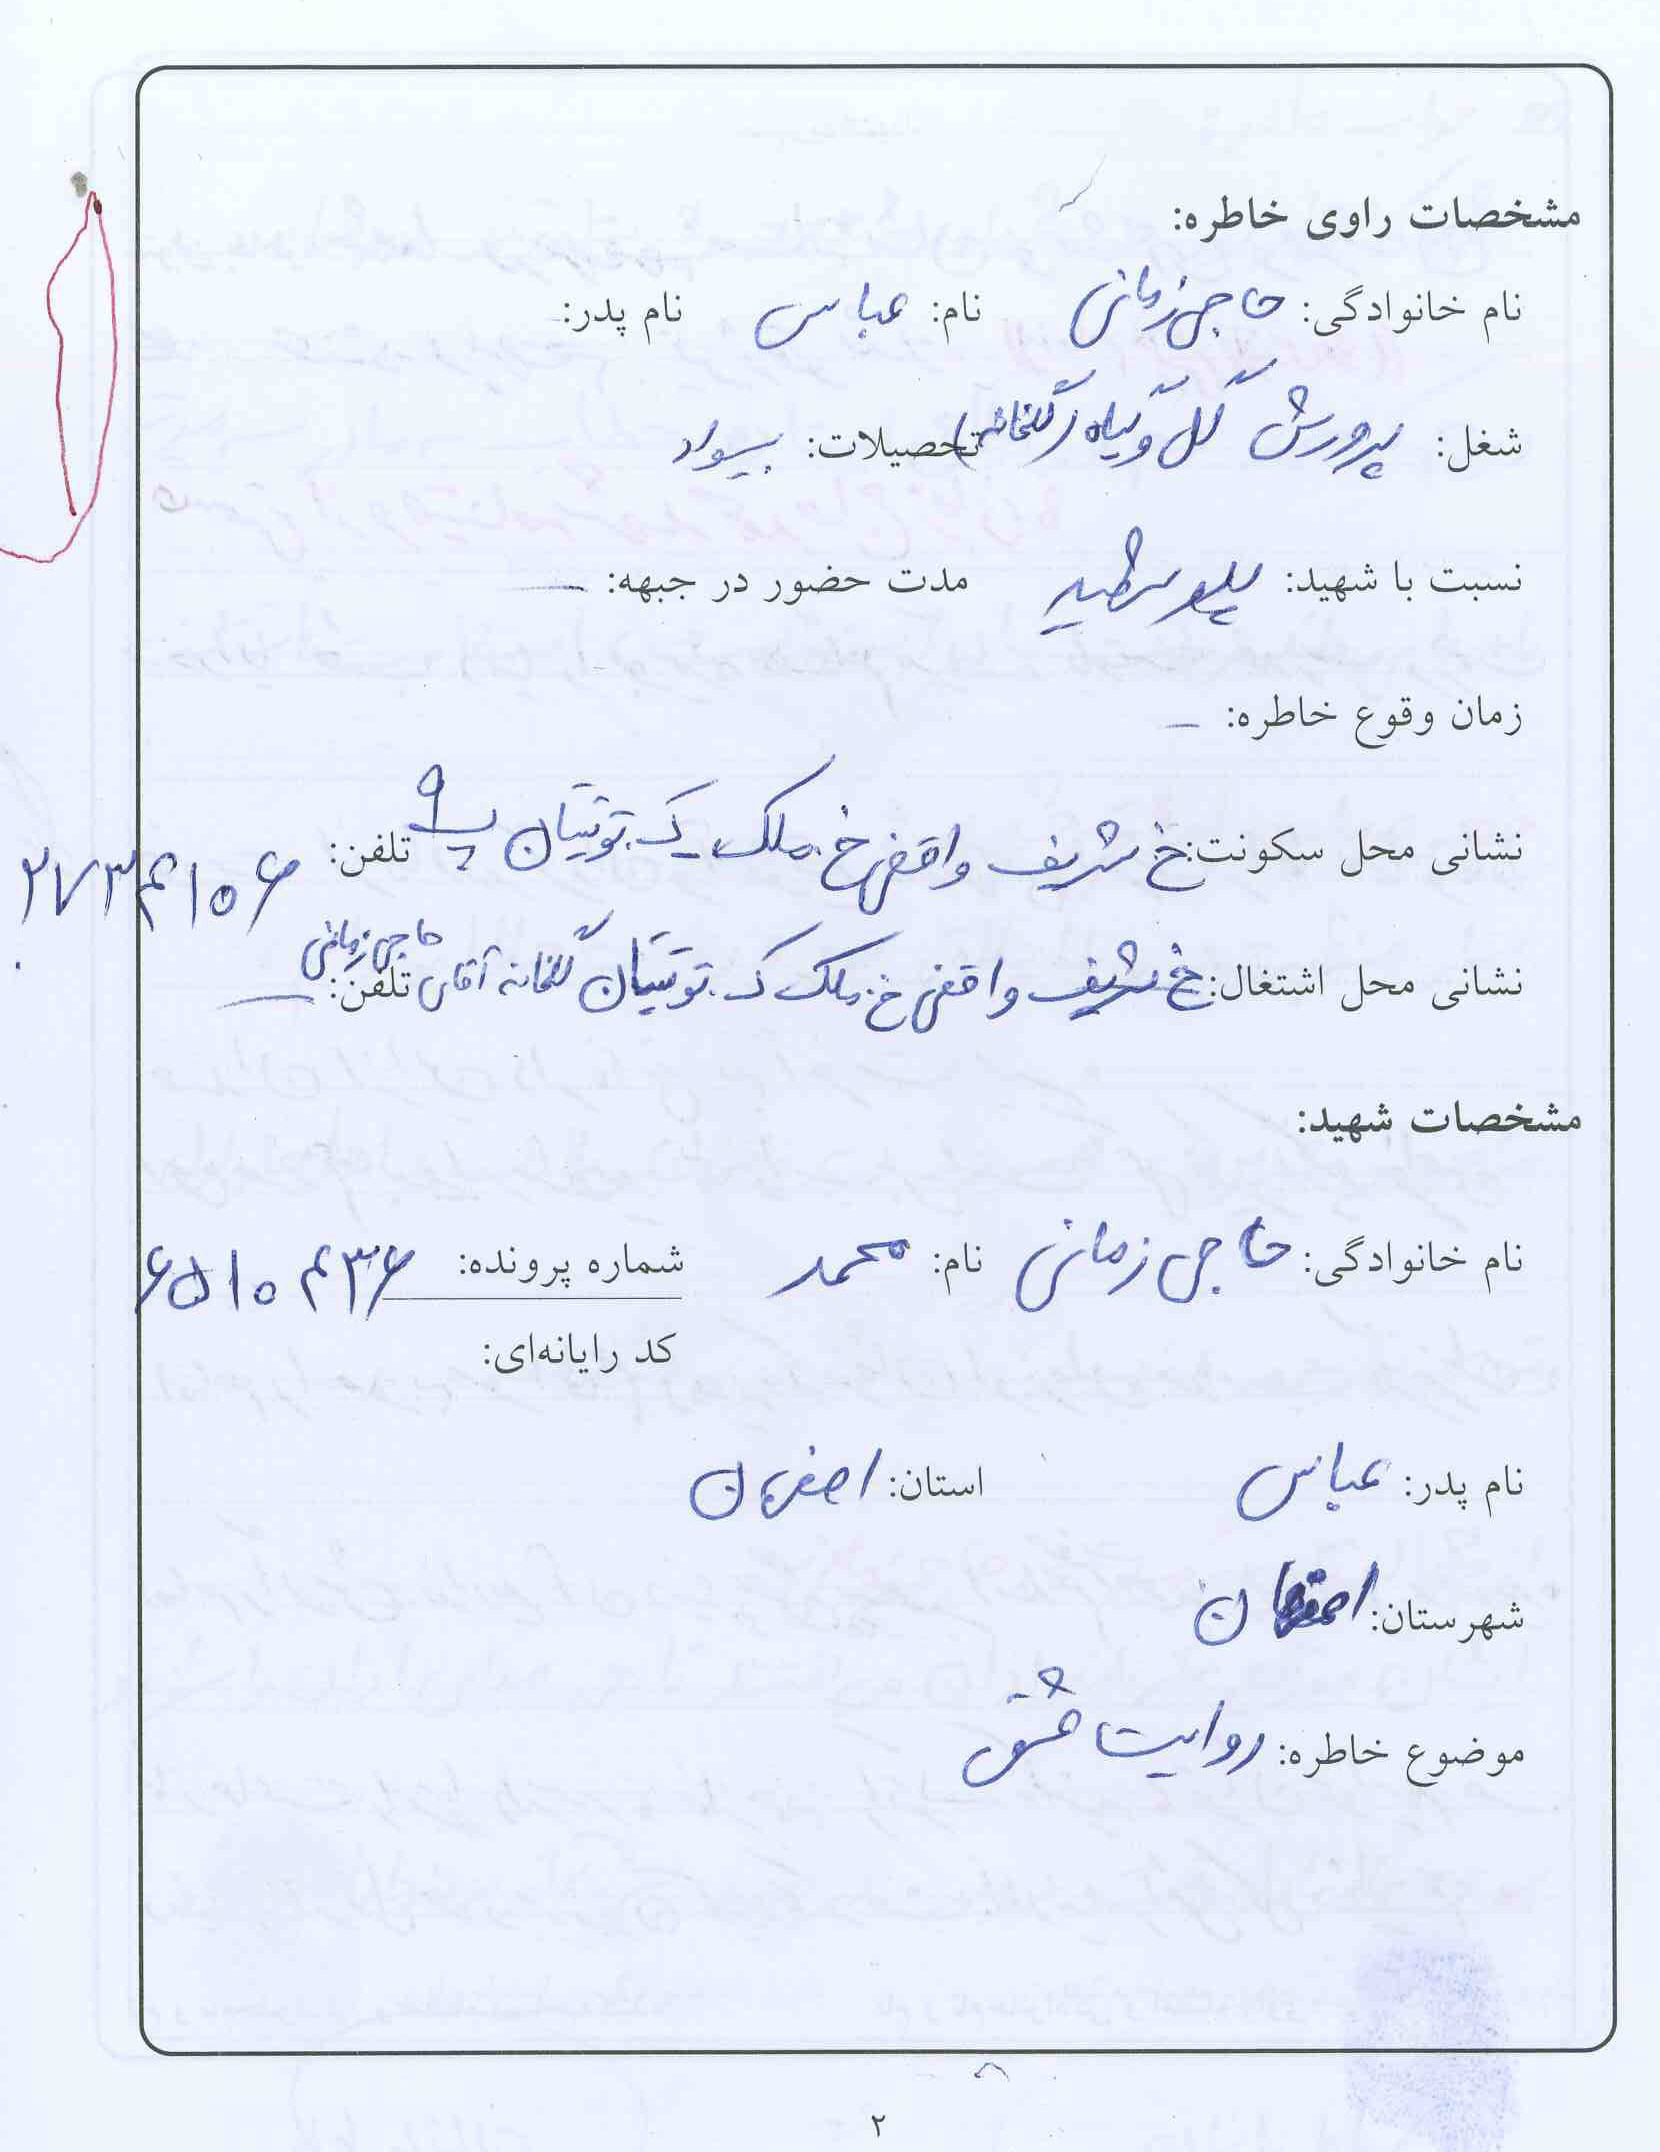 مشخصات راوی خاطره:
نام خانوادگی: حاجی زمانی نام: عباس نام پدر:
شغل: پرورش گل و گیاه (گلخانه) تحصیلات: بیسواد
نسبت با شهید: پدر شهید مدت حضور در جبهه: —
زمان وقوع خاطره: —
نشانی محل سکونت: خ شریف واقفی خ. ملک ک. توتیان پ ۹ تلفن: ۲۷۳۴۱۵۶
نشانی محل اشتغال: خ شریف واقفی خ. ملک ک. توتیان گلخانه آقای حاجی زمانی تلفن: —
مشخصات شهید:
نام خانوادگی: حاجی زمانی نام: محمد شماره پرونده: ۶۵۱۰۴۳۶
کد رایانه‌ای:
نام پدر: عباس استان: اصفهان
شهرستان: اصفهان
موضوع خاطره: روایت عشق
۲